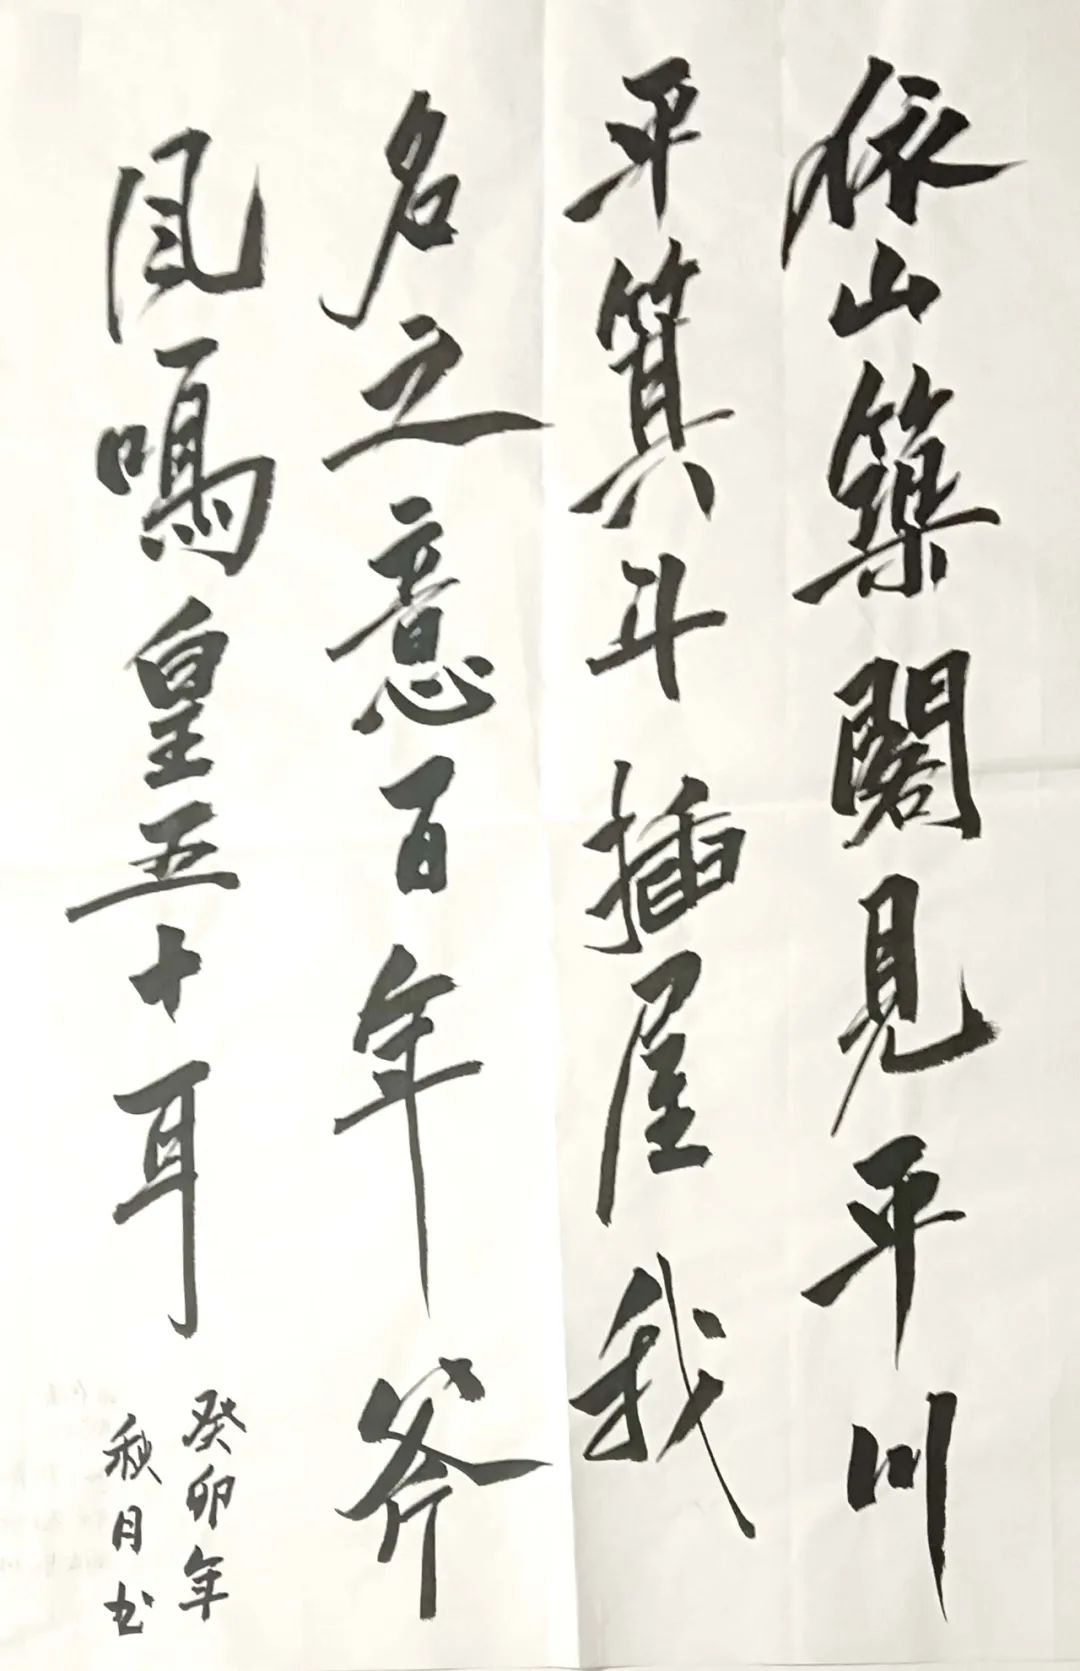 依山築閣見平川
平箕斗插屋我
名之意百年斧
風鳴皇五十耳
癸卯年
秋月书